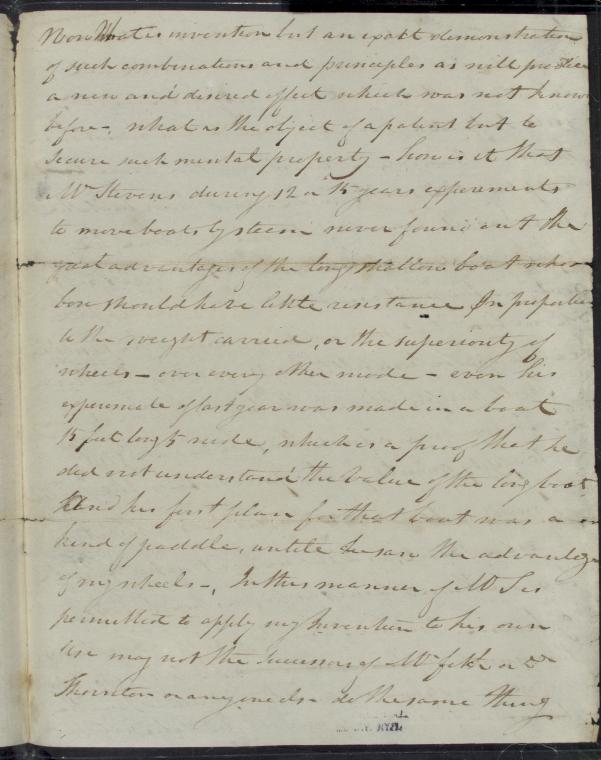 Now What is invention but an exact demonstration
of such combinations and principles as will produce
a new and desired effect which was not know
before -, what is the object of a patent but to
secure such mental property - how is it that
Mr Stevens during 12 or 15 years experements
to move boats by steem never found out the
great advantages of the long shallow boat whos
bow should have little resistance In proportion
to the weight carried, or the superiority of
wheels - over every other mode - even his
experemele of last year was made in a boat
15 feet long 5 wide, which is a proof that he
did not understand the value of the long boat
And his first plan for that boat was a
kind of paddle, untile he saw the advantage
of my wheels -, In this manner if Mr S is
permitted to apply my Invention to his own
use may not the Successors of Mr fitch or Dr
Thornton or any one els - do the same thing